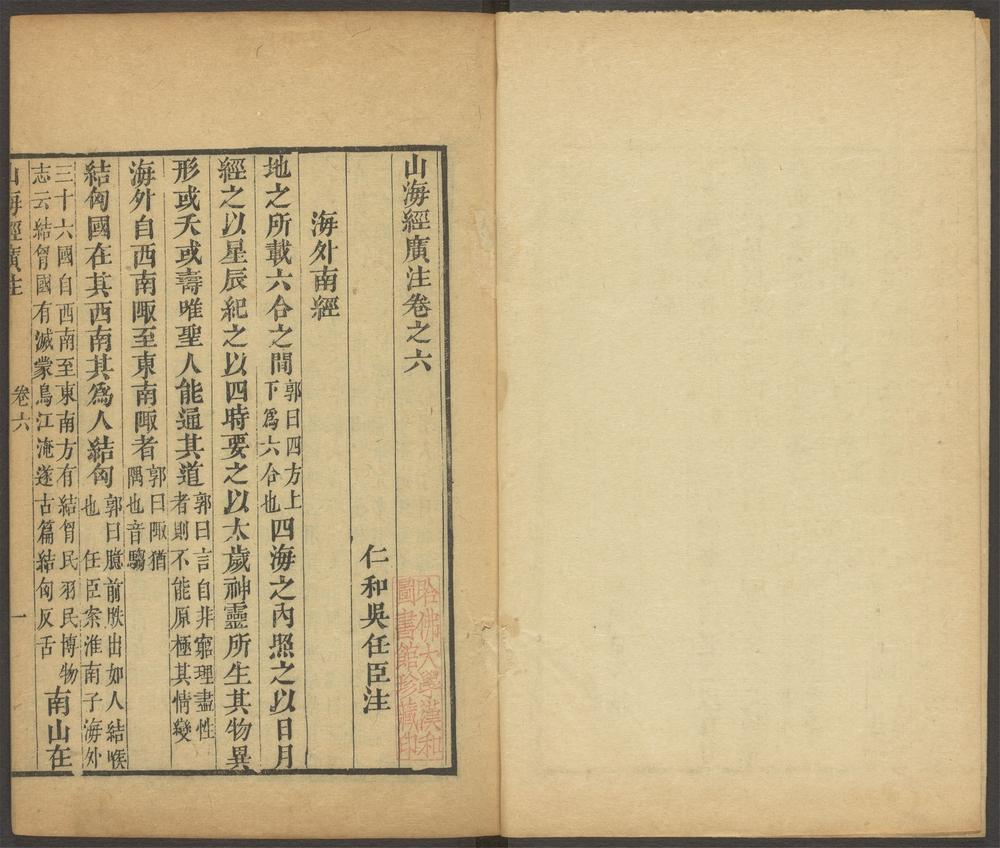 山海經廣注卷之六
仁和吳任臣注
海外南經
地之所載六合之間郭曰四方上下為六合也四海之內照之以日月
經之以星辰紀之以四時要之以太歲神靈所生其物異
形或夭或壽唯聖人能通其道郭曰言自非窮理盡性者則不能原極其情變
海外自西南陬至東南陬者郭曰陬猶隅也音騶
結匈國在其西南其爲人結匈郭曰臆前胅出如人結喉也 任臣案淮南子海外
三十六國自西南至東南方有結胷民羽民博物志云結胷國有滅蒙鳥江淹遂古篇結匈反舌 南山在
山海經廣注 卷六 一
哈佛大學漢和圖書館珍藏印